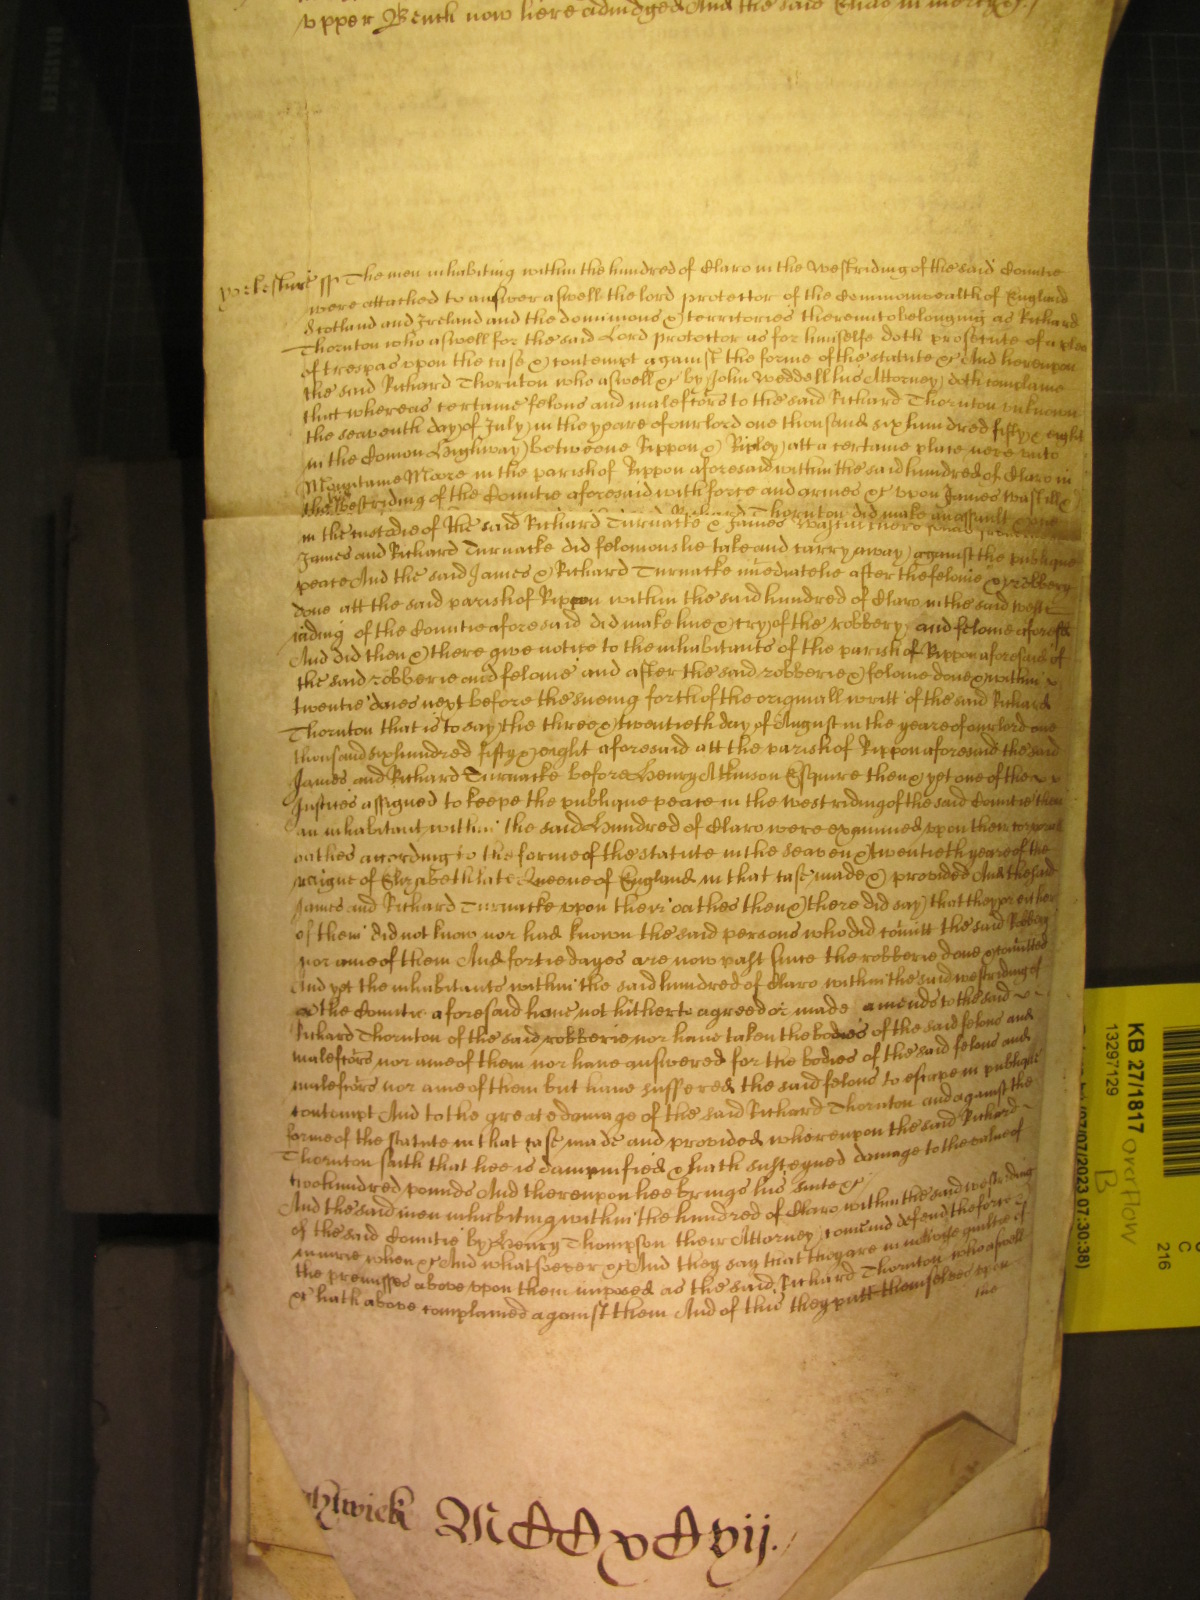 upper Bench now here adiudged And the said Elias in mercy &c
yorkeshire ss The men inhabiting within the hundred of Claro in the Westriding of the said Countie
were attached to answer aswell the lord protector of the Commonwealth of England
Scotland and Ireland and the dominions & territories thereunto belonging as Richard
Thornton who aswell for the said Lord protector as for himselfe doth prosecute of a plea
of trespas upon the case & contempt against the forme of the statute &c And hereupon
the said Richard Thornton who aswell &c by John Weddell his Attorney doth complaine
that whereas certaine felons and malefctors to the said Richard Thornton unknown
the seaventh day of July in the yeare of our lord one thousand six hundred fifty & eight
in the Comon Highway betweene Rippon & Ripley att a certaine place nere unto
Mountaine Moore in the parish of Rippon aforesaid within the said hundred of Claro in
the Westriding of the Countie aforesaid with force and armes &c upon James
Richard Thornton did make an assault & one
in the custodie of the said Richard Turnacke & James
James and Richard Turnacke did feloniouslie take and carry away against the publique
peace And the said James & Richard Turnacke imediatelie after the felonie & robbery
done att the said parish of Rippon within the said hundred of Claro in the said West
riding of the Countie aforesaid did make hue & cry of the robbery and felonie aforesd
And did then & there give notice to the inhabitants of the parish of Rippon aforesaid of
the said robberie and felonie and after the said robberie & felonie done & within
twentie daies next before the sueing forth of the originall writt of the said Richard
Thornton that is to say the three & twentieth day of August in the yeare of our lord one
thousand six hundred fifty & eight aforesaid att the parish of Rippon aforesaid the said
James and Richard Turnacke before Henry Atkinson Esquire then & yet one of the
Justices assigned to keepe the publique peace in the westriding of the said Countie then
an inhabitant within the said Hundred of Claro were examined upon their corporal
oathes according to the forme of the statute in the seaven & twentieth yeare of the
raigne of Elizabeth late Queene of England in that case made & provided And the said
James and Richard Turnacke upon their oathes then & there did say that they or either
of them did not know nor had known the said persons who did comitt the said Robbery
nor anie of them And fortie dayes are now past since the robberie done & comitted
And yet the inhabitants within the said hundred of Claro within the said westriding of
the Countie aforesaid have not hitherto agreed or made amends to the said
Richard Thornton of the said robberie nor have taken the bodies of the said felons and
malefctors nor anie of them nor have answered for the bodies of the said felons and
malefctors nor anie of them but have suffered the said felons to escape in publique
contempt And to the greate damage of the said Richard Thornton and against the
forme of the statute in that case made and provided whereupon the said Richard
Thornton saith that hee is dampnified & hath susteyned damage to the value of
two hundred pounds And thereupon hee brings his suite &c
And the said men inhabiting within the hundred of Claro within the said westriding
of the said Countie by Henry Thompson their Attorney come and defend the force &
iniurie when &c And whatsoever &c And they say that they are in nothinge guiltie of
the premisses above upon them imposed as the said Richard Thornton who aswell
&c hath above complained against them And of this they putt themselves upon
the
MCCxCvij.
KB 27/1817
13297129
overflow
B
07/07/2023 07:30:38)
C
216